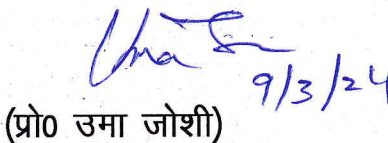 Uma
9/3/24
(प्रो0 उमा जोशी)